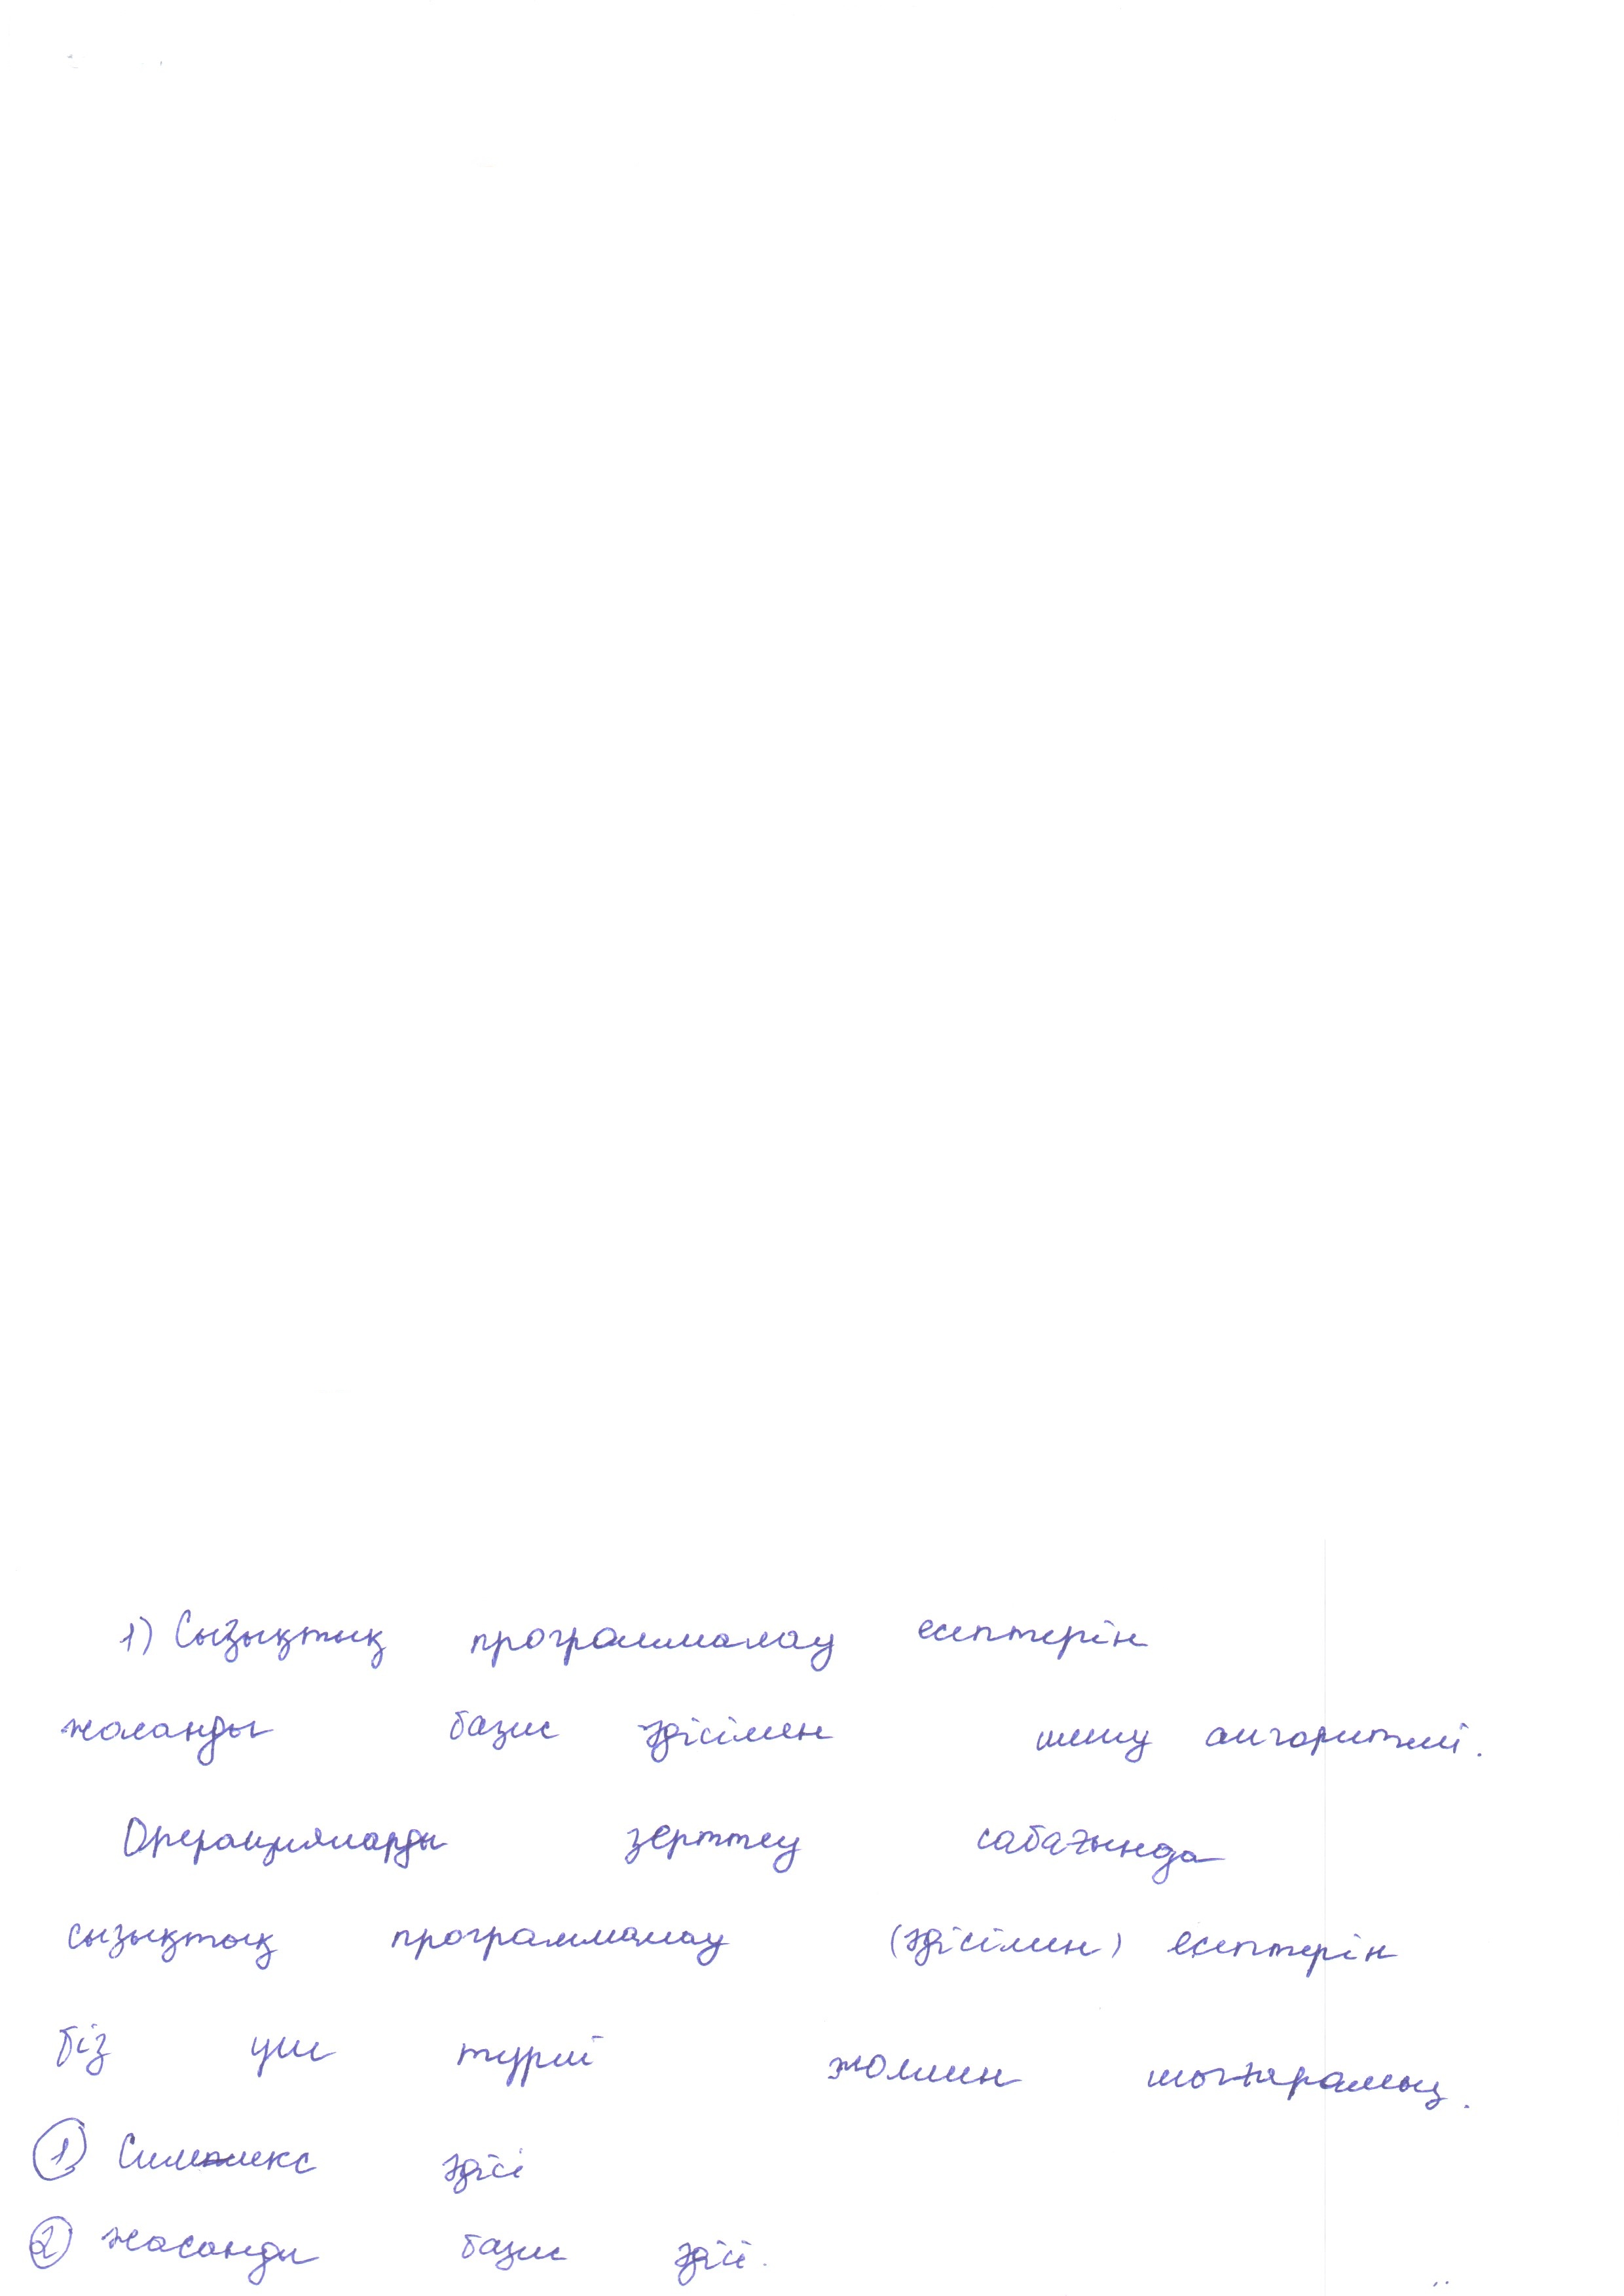 1) Сызықтық программалау есептерін
жасанды базис әдісімен шешу алгоритмі.
Операцияларды зерттеу сабағында
сызықтық программалау (әдісімен) есептерін
біз үш түрлі жолмен шығарамыз.
① Симплекс әдісі
② Жасанды базис әдісі.